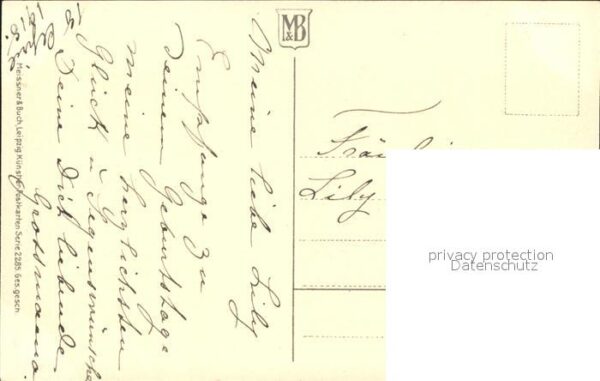 Meine liebe Lily
Empfange zu
Deinem Geburtstage
meine herzlichsten
Glück u. Segenswünsche
Deine Dich liebende
Grossmama.
M&B
Meissner & Buch, Leipzig. Künstler-Postkarten Serie 2285 Ges. gesch.
Lily
privacy protection
Datenschutz